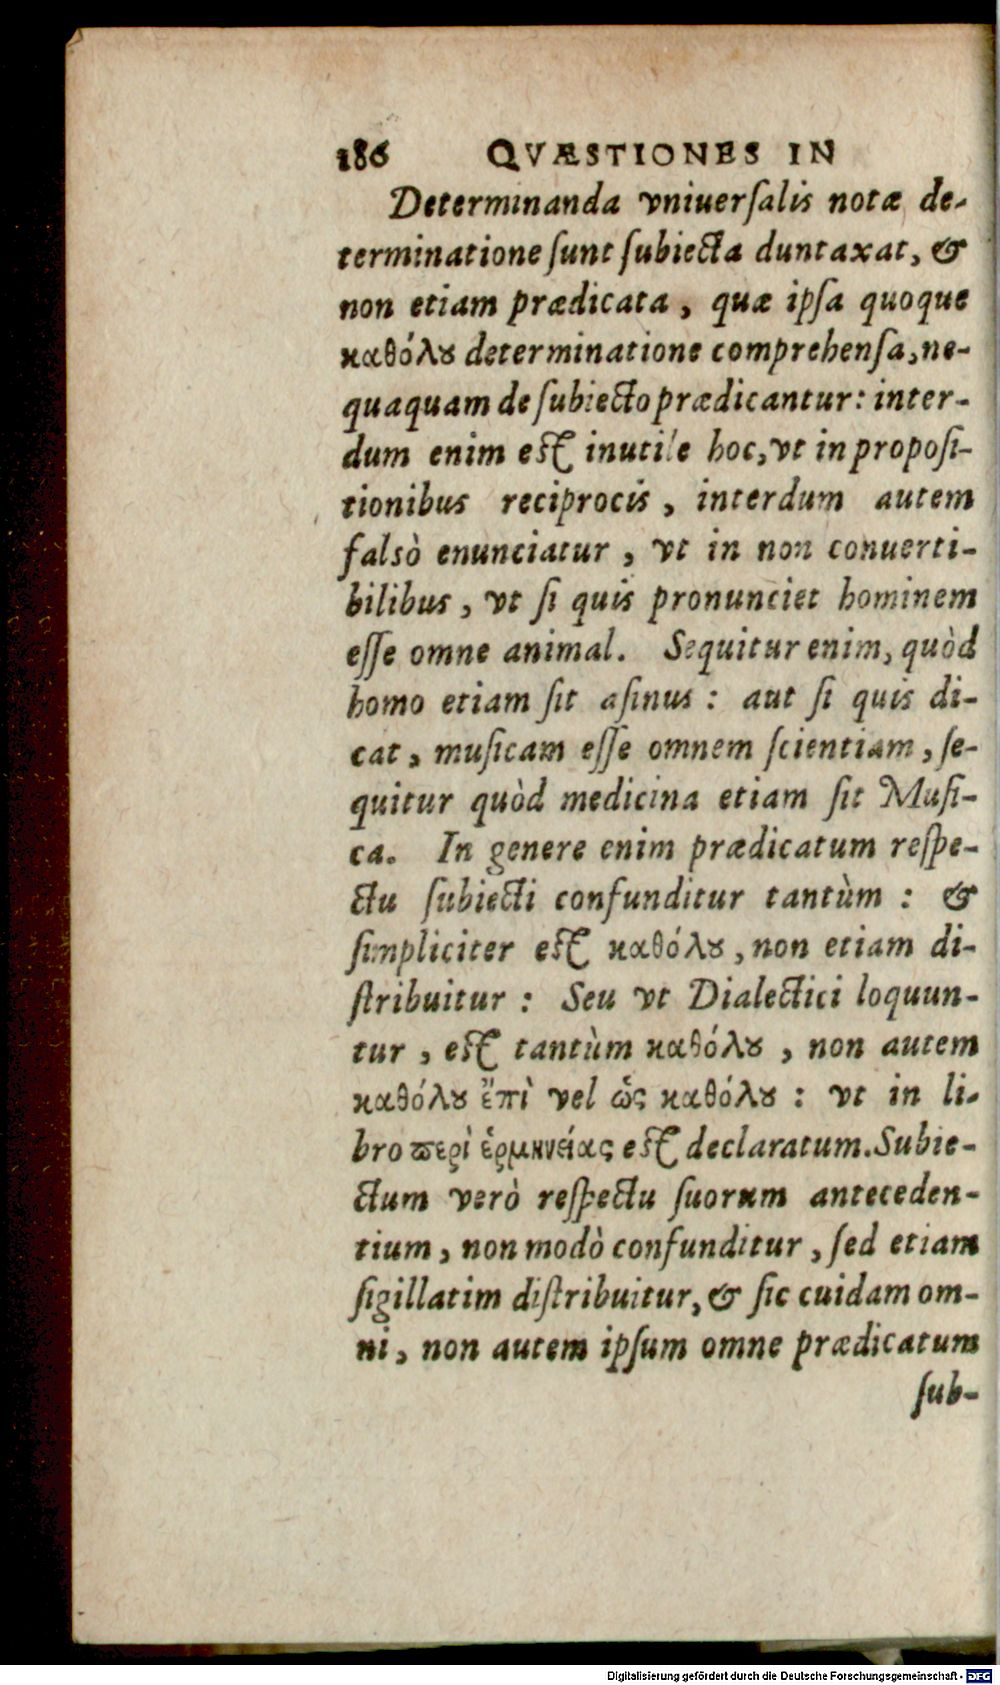 186 QVÆSTIONES IN
Determinanda vniuerſalis notæ de-
terminatione ſunt ſubiecta duntaxat, &
non etiam prædicata, quæ ipſa quoque
καθόλȣ determinatione comprehenſa, ne-
quaquam de ſubiecto prædicantur: inter-
dum enim eſt inutile hoc, vt in propoſi-
tionibus reciprocis, interdum autem
falsò enunciatur, vt in non conuerti-
bilibus, vt ſi quis pronunciet hominem
eſſe omne animal. Sequitur enim, quòd
homo etiam ſit aſinus: aut ſi quis di-
cat, muſicam eſſe omnem ſcientiam, ſe-
quitur quòd medicina etiam ſit Muſi-
ca. In genere enim prædicatum reſpe-
ctu ſubiecti confunditur tantùm: &
ſimpliciter eſt καθόλȣ, non etiam di-
ſtribuitur: Seu vt Dialectici loquun-
tur, eſt tantùm καθόλȣ, non autem
καθόλȣ ἔπὶ vel ὥς καθόλȣ: vt in li-
bro ϖερὶ ἑρμηνείας eſt declaratum. Subie-
ctum verò reſpectu ſuorum anteceden-
tium, non modò confunditur, ſed etiam
ſigillatim diſtribuitur, & ſic cuidam om-
ni, non autem ipſum omne prædicatum
ſub-
Digitalisierung gefördert durch die Deutsche Forschungsgemeinschaft - DFG